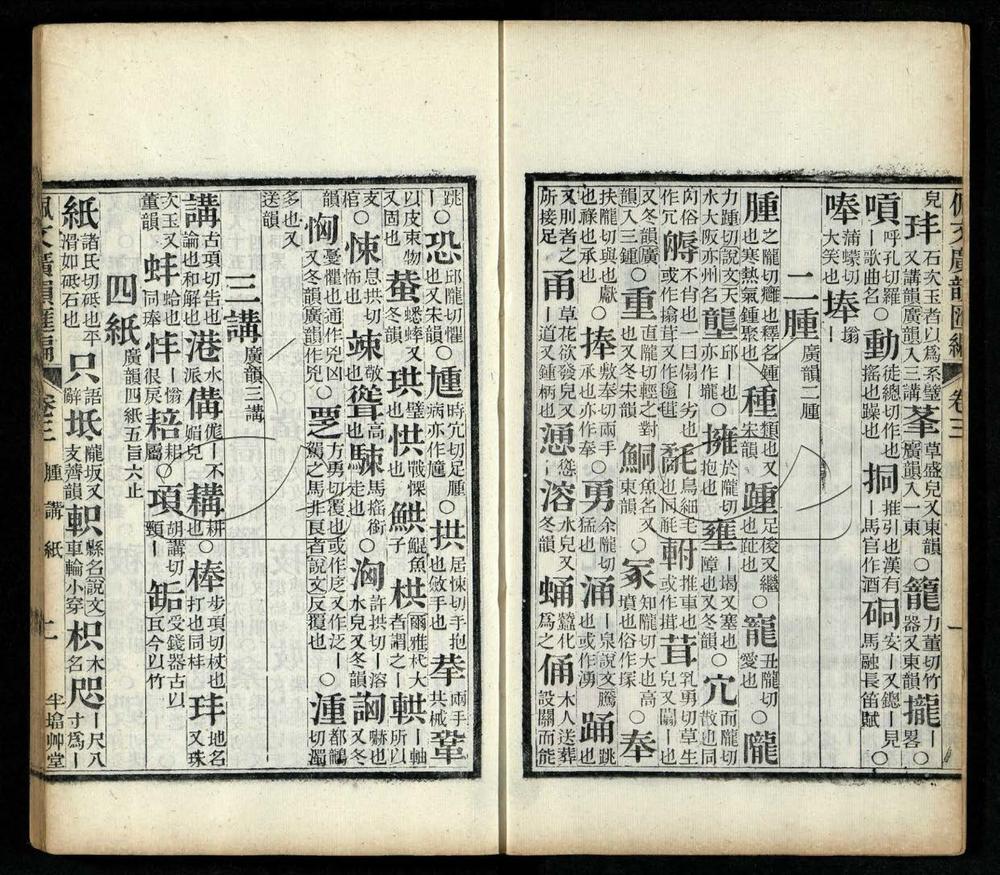 佩文廣韻匯編 卷三 一
皃 玤石次玉者以爲系璧又講韻廣韻入三講 草盛皃又東韻廣韻入一東○籠力董切竹器又東韻攏｜畧○
嗊呼孔切羅｜歌曲名○動徒總切作也搖也躁也挏推引也漢有｜馬官作酒硐安｜又鎴｜見馬融長笛賦○
唪蒲蠓切大笑也埲塕｜
二腫廣韻二腫
腫之隴切癰也釋名鍾也寒熱氣鍾聚也○種類也又宋韻踵足後又繼也趾也○寵丑隴切愛也○隴
力踵切說文天水大阪亦州名壟邱｜也亦作壠○擁於隴切抱也壅｜堨又塞也障也又冬韻○宂而隴切散也同
內俗作冗不肖也一曰傝｜劣也或作搑茸又作𨓈鳥細毛也同氄軵推車也或作搑茸乳勇切草生皃又闒｜也
又冬韻廣韻入三鍾○重直隴切輕之對也又冬宋韻鮦魚名又東韻○冢知隴切大也高墳也俗作塚○奉
扶隴切與也獻也祿也承也○捧敷奉切兩手承也亦作奉○勇余隴切猛也涌｜泉說文騰也或作湧踊跳也
又刖者之所接足甬草花欲發皃又｜道又鍾柄也慂慫｜溶水皃又冬韻蛹蠶化爲之俑木人送葬設關而能
跳｜○恐邱隴切懼也又宋韻○尰時宂切足腫病亦作𤺄○拱居悚切手抱也斂手也拲兩手共械鞏
以皮束物又固也蛬蟋蟀又冬韻珙璧也㤨戰慄也鯕鯤魚子栱爾雅杙大者謂之｜輁｜軸所以
支棺○悚息拱切怖也竦敬也聳高也駷馬搖銜走也○洶許拱切｜溶水皃又冬韻詾嚇也又冬
韻恟憂懼也通作兇凶又冬韻廣韻作兇○覂方勇切覆也或作𡉏又作泛｜駕之馬非良者說文反覆也○湩都鶴切濁
多也又送韻
三講廣韻三講
講古項切告也論也和解也港水派傋傋｜不媚皃耩耕也○棒步項切杖也打也同棓玤地名又珠
次玉又董韻蚌蛤也同琫㤓｜愶很戾䎧耜屬○項胡講切頸｜缿受錢器古以瓦今以竹
四紙廣韻四紙五旨六止
紙諸氏切砥也平滑如砥石也只語辭坻隴坂又支薺韻軹縣名說文車輪小穿枳木名咫｜尺八寸爲｜
佩文廣韻匯編 卷三 腫講紙 二 半塢艸堂